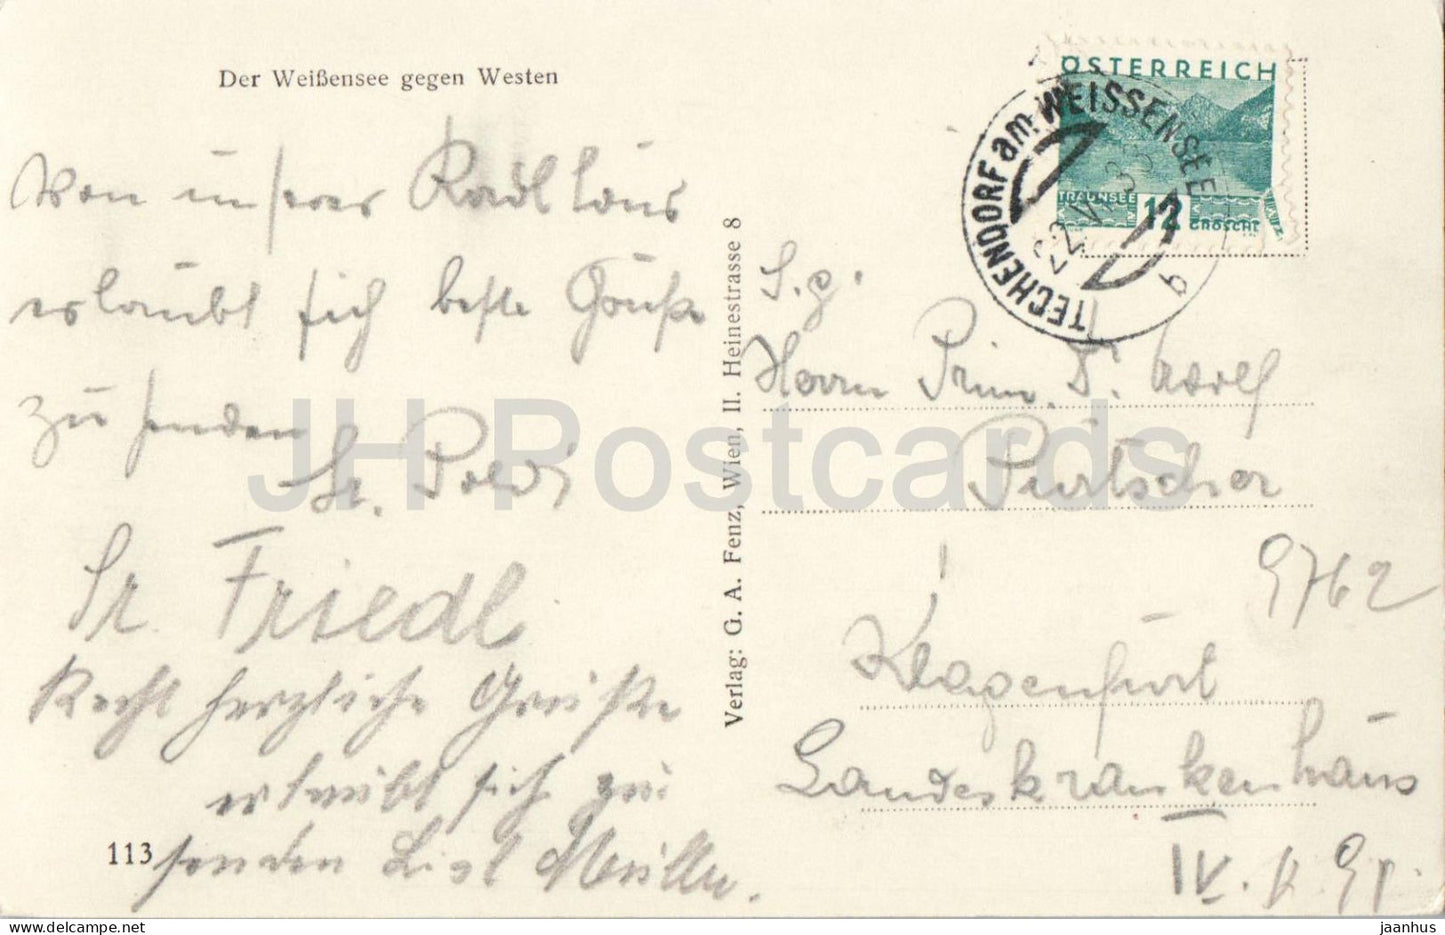 Der Weißensee gegen Westen
Von unserer Radltour
erlaubt sich beste Grüße
zu senden
Sr. Poldi
Sr. Friedl
Recht herzliche Grüße
erlaubt sich zu
senden Lisl Müller.
113
Verlag: G. A. Fenz, Wien, II. Heinestrasse 8
ÖSTERREICH
TRAUNSEE
12 GROSCHEN
TECHENDORF am WEISSENSEE
22 VI 33
b
S.g.
Herrn Prim. Dr. Adolf
Purtscher
Klagenfurt
Landeskrankenhaus
9762
IV.
JH Postcards
jaanhus